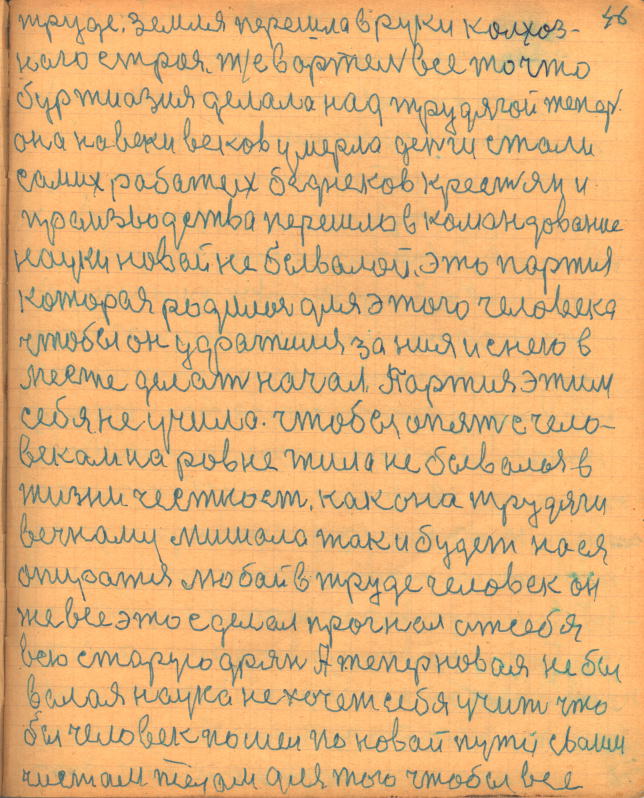 46
труде. Земля перешла в руки колхоз-
наго строя. т/е в артел все то что
буржиазия делала над трудягой тепер.
она навеки веков умерла денги стали
самих работих беднеков крестян и
производства перешло в командование
науки новай не бывалой. Это партия
которая родилоя для этого человека
чтобы он удражиля за ния и с нею в
месте делат начал. Партия этим
себя, не учила. чтобы опят с чело-
векам на ровне жила не бывалоя в
жизни честност, как она трудяги
вечнаму мишала так и будет на ся
опиратя любай в труде человек он
же все это сделал прогнал от себя
всю старую дрян А тепер новая не бы
валая наука не хочет себя учит что
бы человек пошел по новай пути сваим
чистам телам для того чтобы все